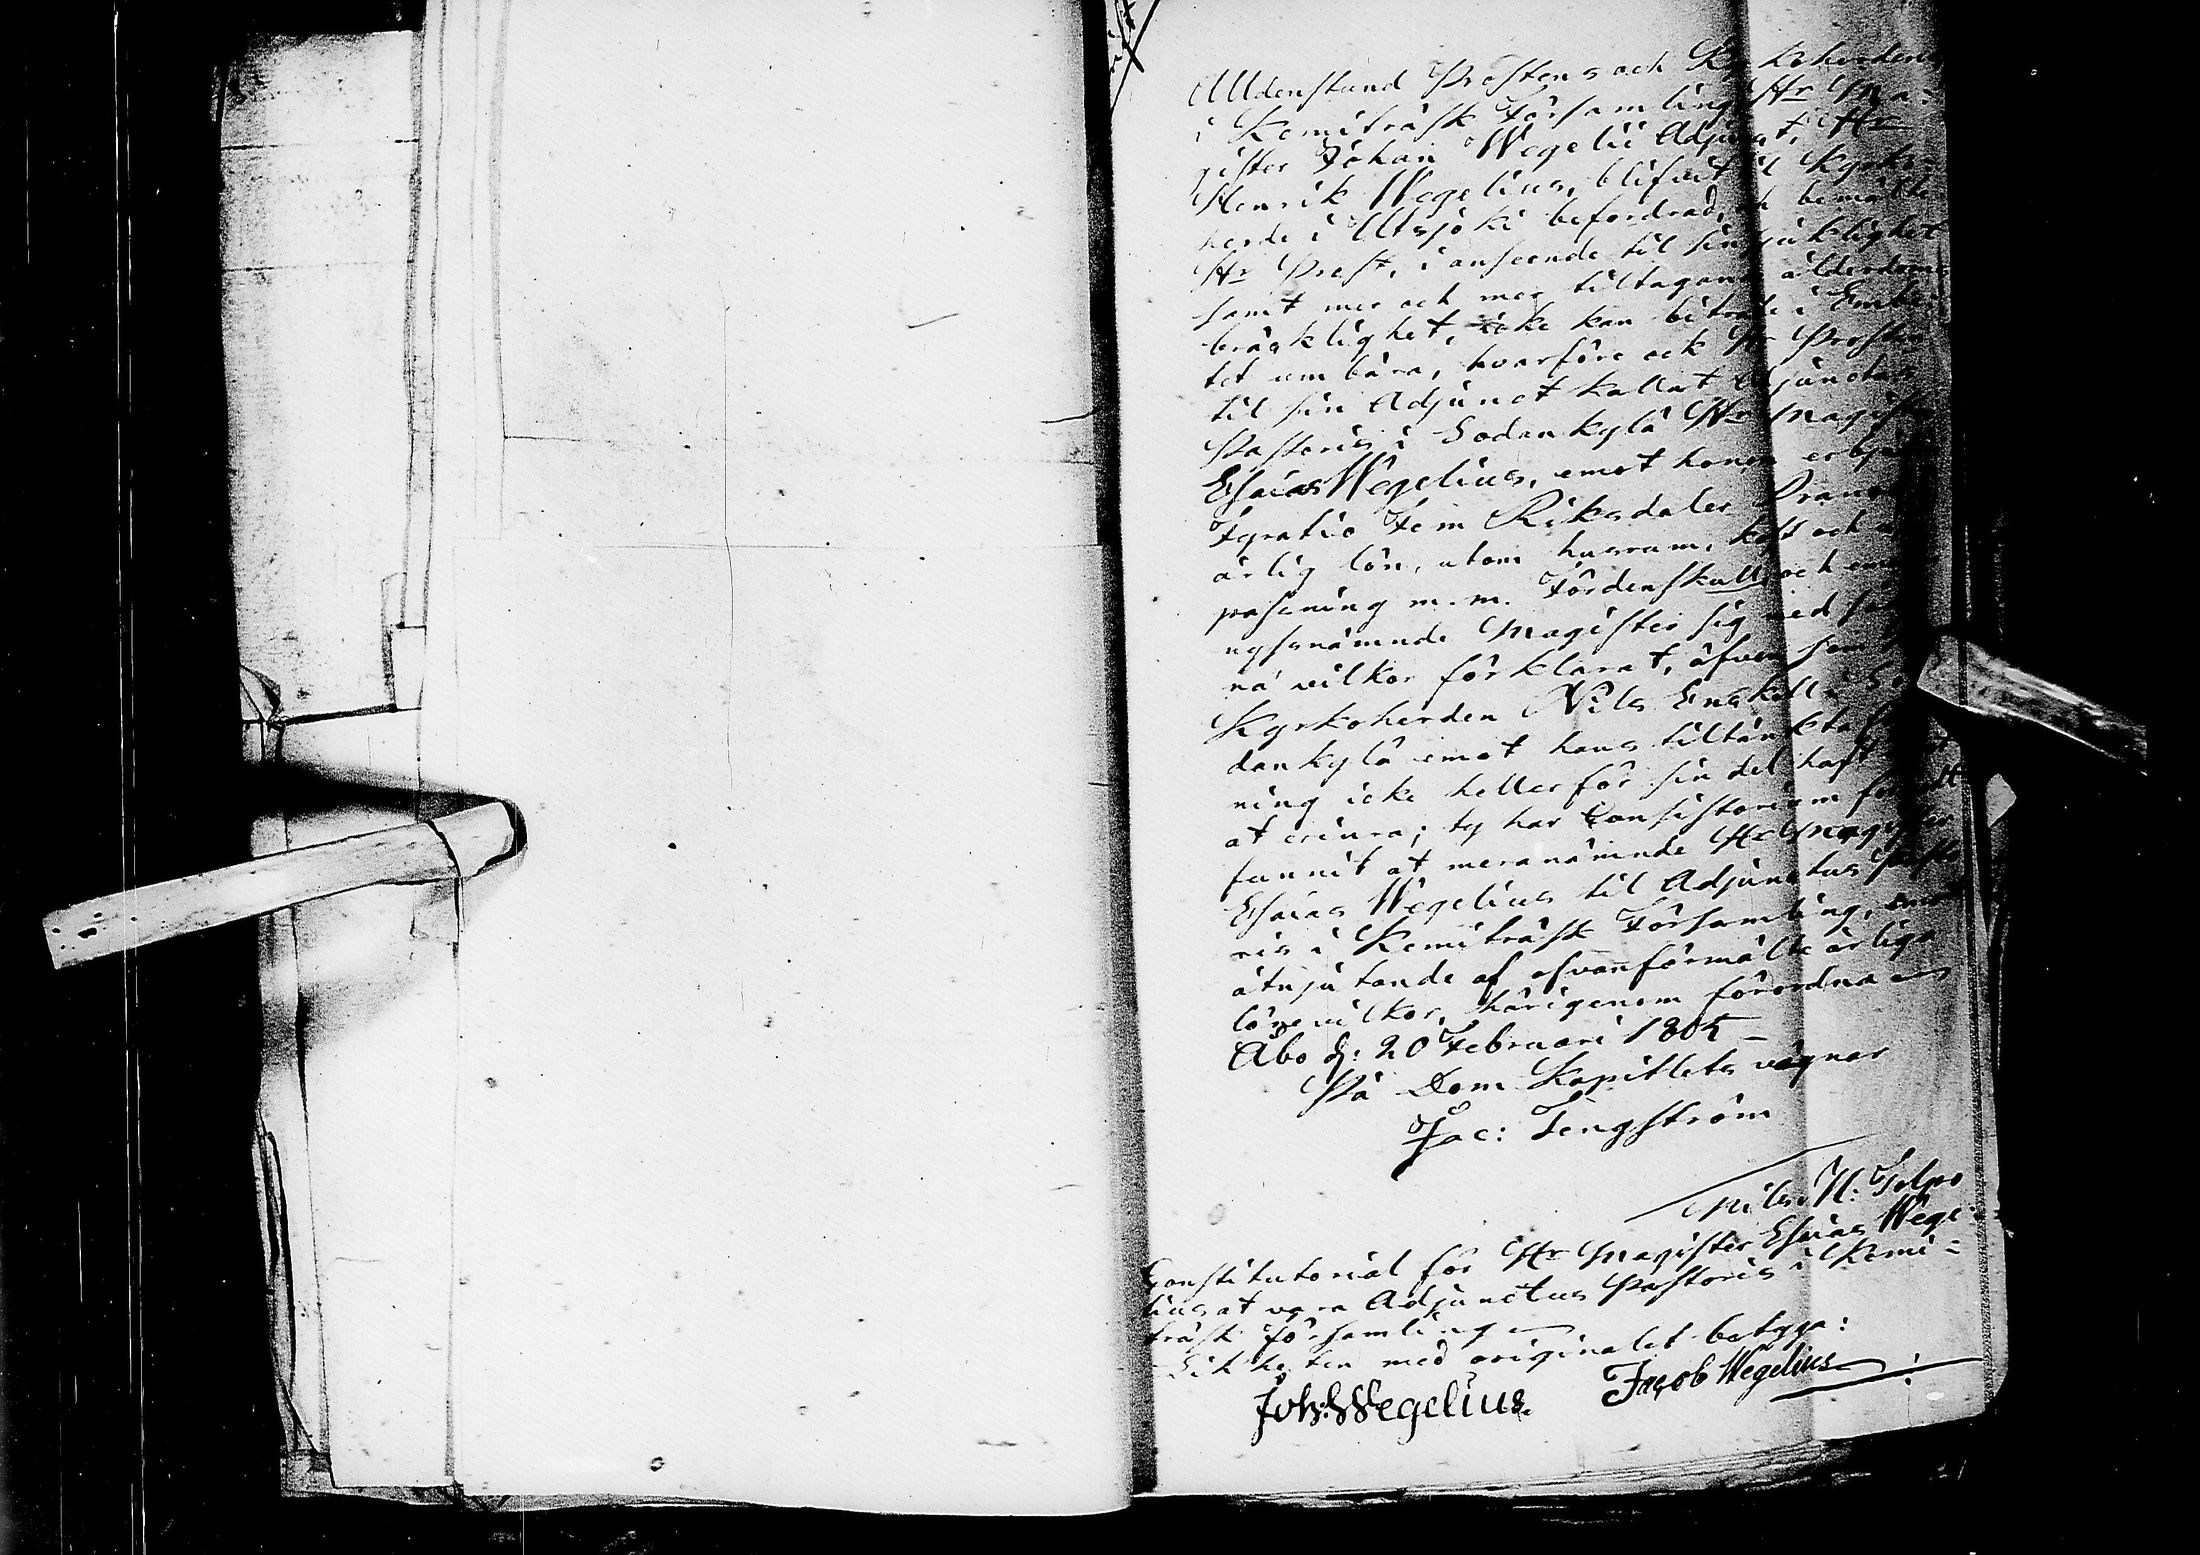 Alldenstund Prostens och Kyrkoherdens
i Kemiträsk Församling Hr Ma-
gister Johan Wegelii Adjunct, Hr
Henrik Wegelius, blifvit til Kyrko-
herde i Utsjoki befordrad, och bemälte
Hr Prost, i anseende til sin sjuklighet
samt mer och mer tiltagande ålderdoms
bräcklighet, icke kan biträde i Embe-
tet umbära, hvarföre ock Hr Prosten
til sin Adjunct kallat Adjunctus
Pastoris i Sodankylä Hr Magister
Esaias Wegelius, emot honom erbjuden
Tjugutio Fem Riksdaler
årlig lön, utom husrum, kost och
passning m.m. Fördenskull och
nyssnämnde Magister sig med
na vilkor förklarat, äfven som
Kyrkoherden Nils Enskell i So-
dankylä emot hans tiltänkta
ning icke heller för sin del haft
at erinra; ty har Consistorium for rätt
funnit at meranämnde Hr Magister
Esaias Wegelius til Adjunctus Pasto-
ris i Kemiträsk Församling, emot
åtnjutande af ofvanförmälte årliga
lönevilkor, härigenom förordna
Åbo d: 20 Februari 1805
På Dom Kapitlets vägnar
Jac: Tengström
Nils H:
Constitutorial för Hr Magister Esaias Wege-
lius at vara Adjunctus Pastoris i Kemi-
träsk församling
Likheten med originalet betyga:
Joh: Wegelius. Jacob Wegelius